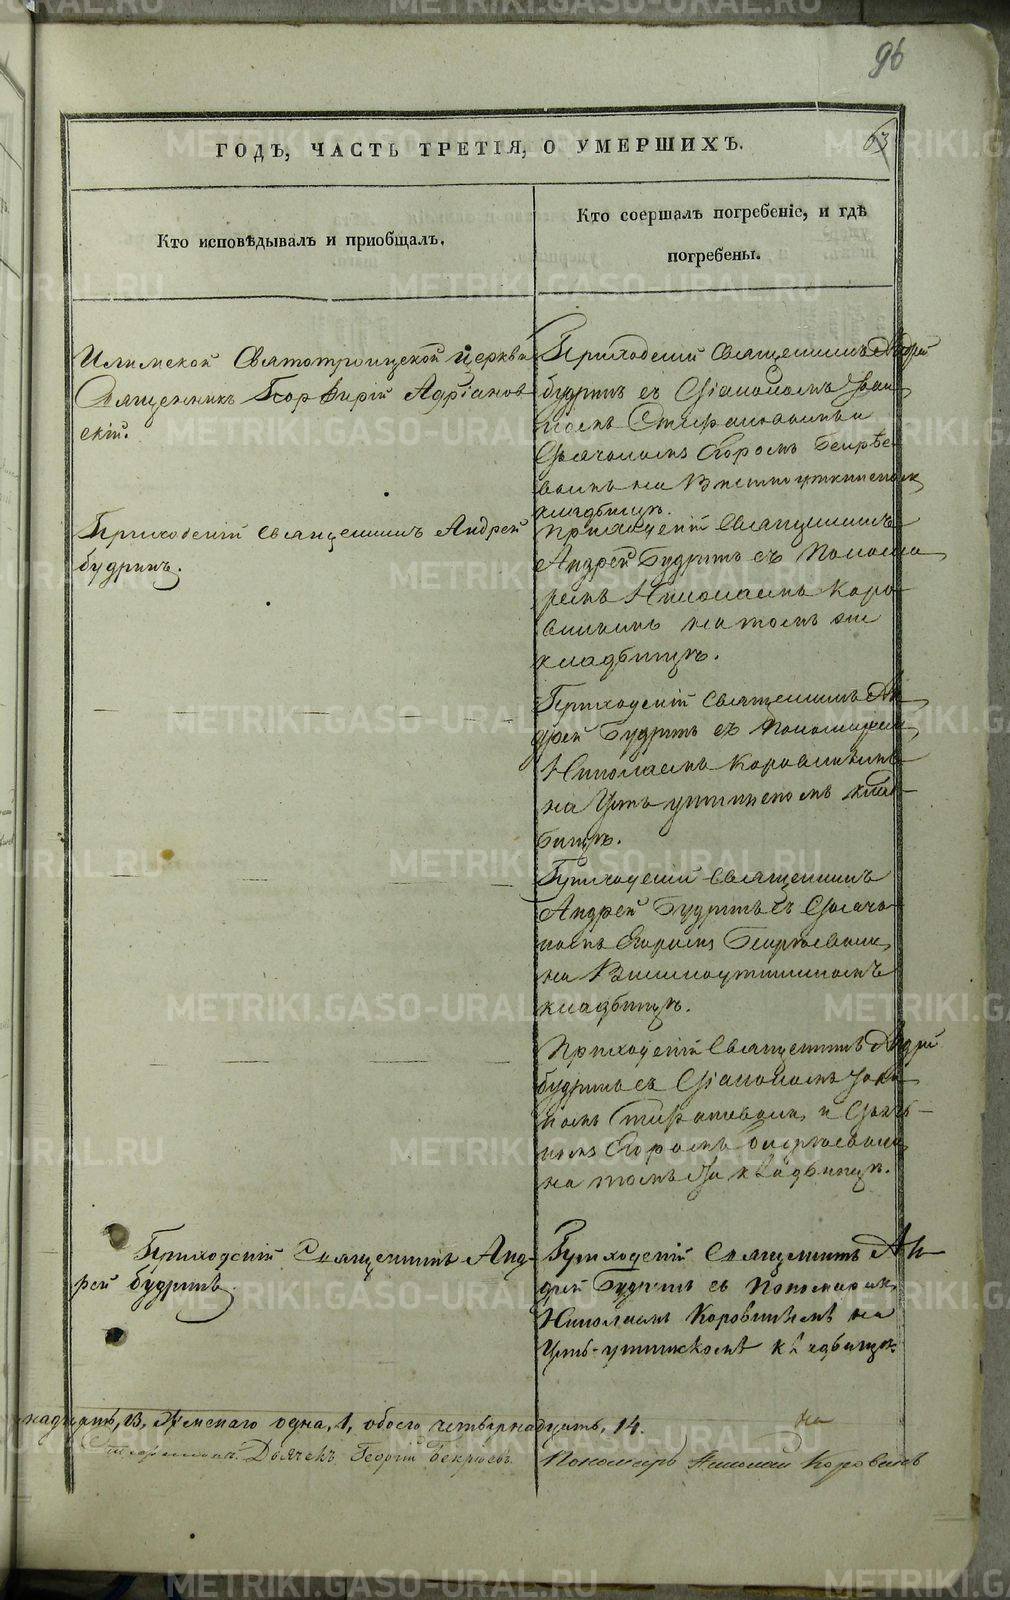 96
63
ГОДЪ, ЧАСТЬ ТРЕТІЯ, О УМЕРШИХЪ.
Кто исповѣдывалъ и приобщалъ.
Кто соершалъ погребеніе, и гдѣ
погребены.
Илимской Святотроицкой церкви
Священникъ Порфирій Адріанов
скій.
Приходскій Священникъ Андрей
Будринъ с Діакономъ Іоан
номъ Стефановымъ и
Дьячкомъ Егоромъ Бекрѣе
вымъ на
кладбищѣ.
Приходскій Священникъ Андрей
Будринъ.
Приходскій Священникъ
Андрей Будринъ съ Понома
ремъ Николаемъ Коро
виннымъ на томъ же
кладбищѣ.
Приходскій Священникъ Ан
дрей Будринъ съ Пономарем
Николаемъ Коровинымъ
на Усть уткинскомъ клад
бищѣ.
Приходскій Священникъ
Андрей Будринъ съ Дьячко
мъ Егоромъ
на
кладбищѣ.
Приходскій Священникъ Андрей
Будринъ съ Діакономъ Іоан
номъ и Дьяч
комъ Егоромъ
на томъ же кладбищѣ.
Приходскій Священникъ Анд
рей Будринъ.
Приходскій Священникъ Ан
дрей Будринъ съ Пономарем
Николаемъ Коровинымъ на
Усть-уткинскомъ кладбищѣ
надцать, 13, Женскаго одна, 1, обоего четырнадцать, 14.
Дьячекъ Георгій Бекрѣевъ
Пономарь Николай Коровинъ
METRIKI.GASO-URAL.RU